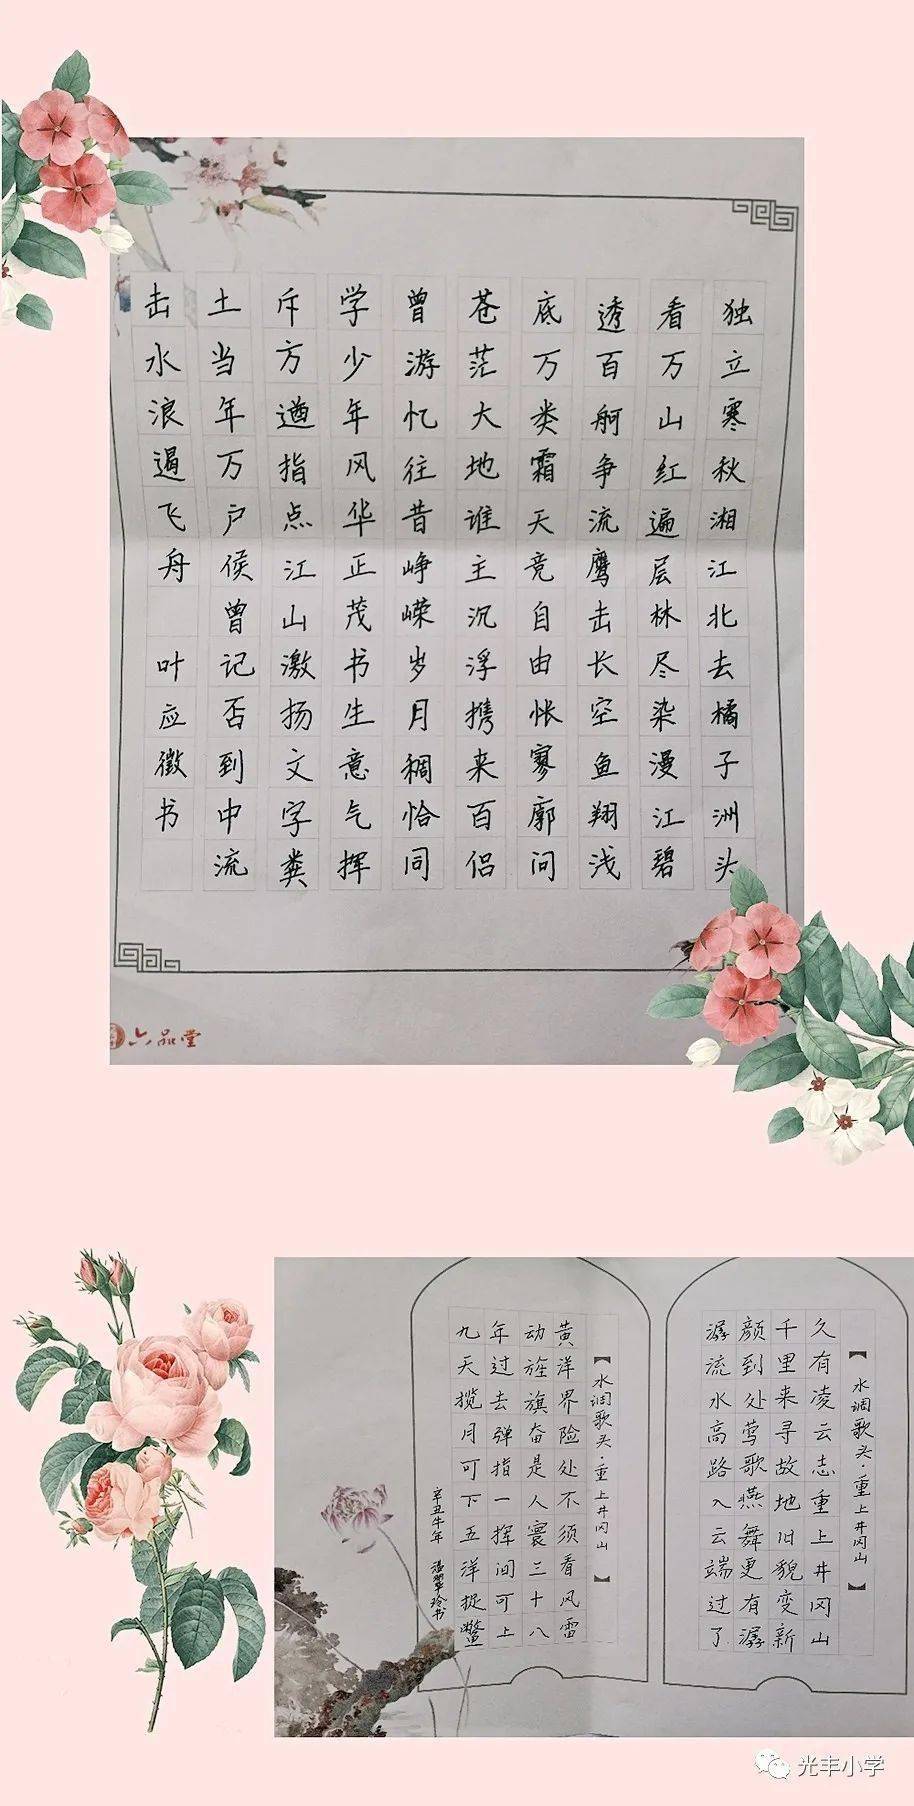 独立寒秋湘江北去橘子洲头
看万山红遍层林尽染漫江碧
透百舸争流鹰击长空鱼翔浅
底万类霜天竞自由怅寥廓问
苍茫大地谁主沉浮携来百侣
曾游忆往昔峥嵘岁月稠恰同
学少年风华正茂书生意气挥
斥方遒指点江山激扬文字粪
土当年万户侯曾记否到中流
击水浪遏飞舟 叶应书
六品堂
【水调歌头·重上井冈山】
久有凌云志重上井冈山
千里来寻故地旧貌变新
颜到处莺歌燕舞更有潺
潺流水高路入云端过了
【水调歌头·重上井冈山】
黄洋界险处不须看风雷
动旌旗奋是人寰三十八
年过去弹指一挥间可上
九天揽月可下五洋捉鳖
辛丑牛年 玲书
光丰小学